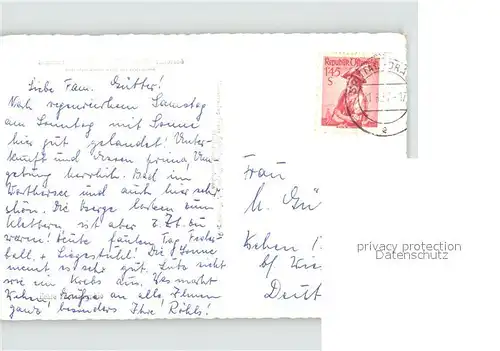 Liebe Fam. Gütter!
Nach regnerischem Samstag
am Sonntag mit Sonne
hier gut gelandet! Unter-
kunft und Essen prima, Um-
gebung herrlich. Bad im
Wörthersee und auch hier sehr
schön. Die Berge locken zum
Klettern, ist aber z. Zt. zu
warm! Heute faulen Tag, Feder-
ball, + Liegestuhl! Die Sonne
meint es sehr gut. Lutz
wie ein Krebs aus. Was macht
an alle, Ihnen
ganz besonders Ihre Röhls!
Republik Österreich
1.45
S
Frau
M. Gü
b/
privacy protection
Datenschutz